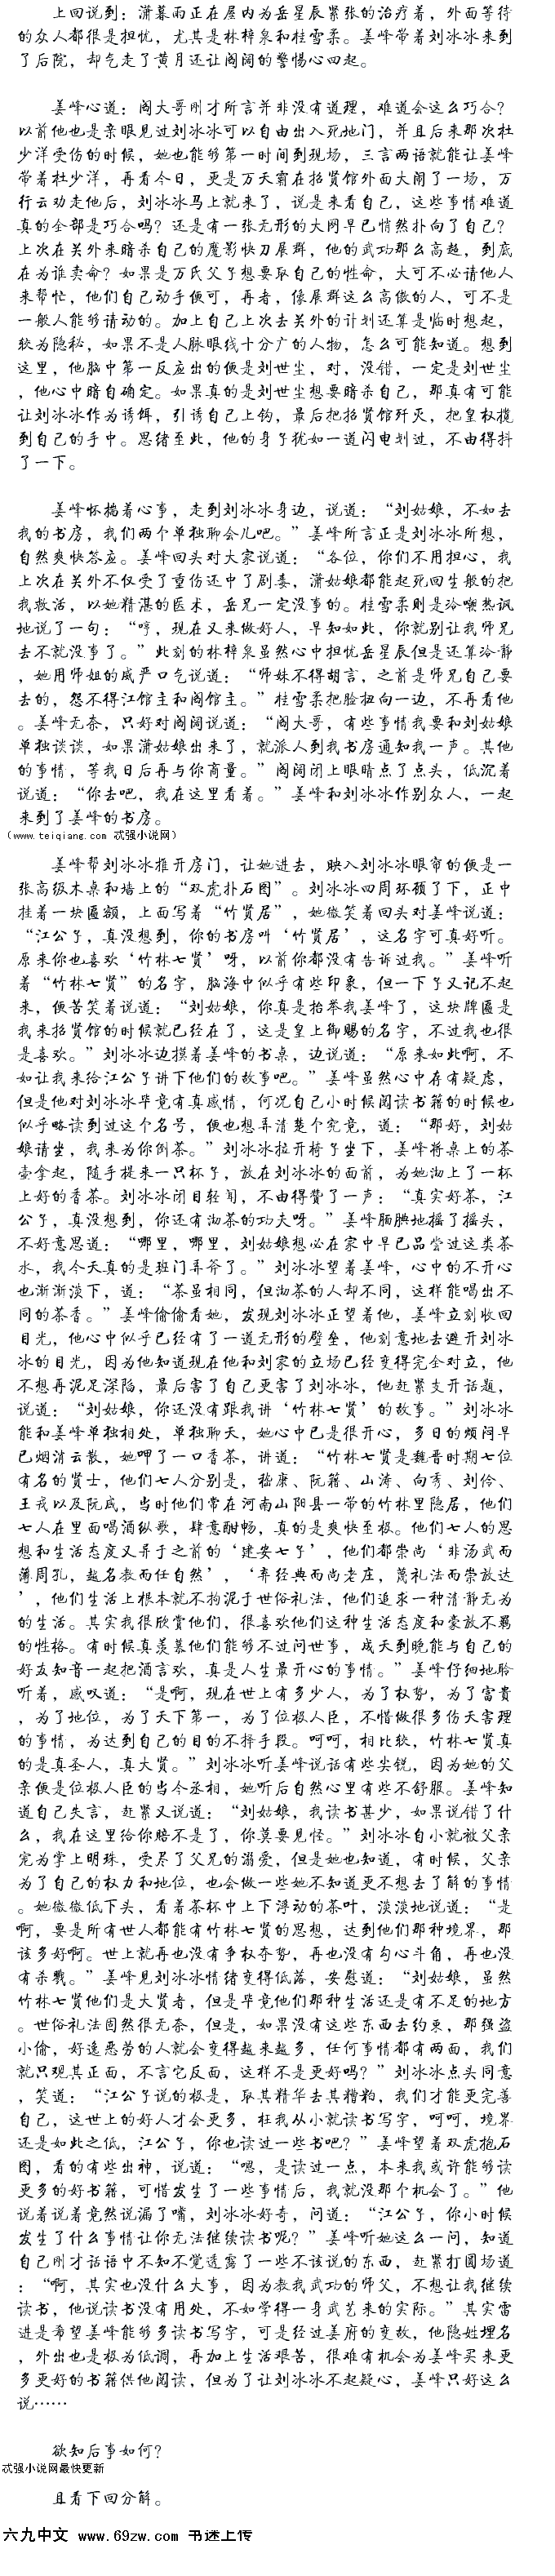 上回说到：潇暮雨正在屋内为岳星辰紧张的治疗着，外面等待
的众人都很是担忧，尤其是林梓泉和桂雪柔。姜峰带着刘冰冰来到
了后院，却气走了黄月还让阎阔的警惕心四起。
姜峰心道：阎大哥刚才所言并非没有道理，难道会这么巧合？
以前他也是亲眼见过刘冰冰可以自由出入死地门，并且后来那次杜
少洋受伤的时候，她也能够第一时间到现场，三言两语就能让姜峰
带着杜少洋，再看今日，更是万天霸在招贤馆外面大闹了一场，万
行云劝走他后，刘冰冰马上就来了，说是来看自己，这些事情难道
真的全部是巧合吗？还是有一张无形的大网早已悄然扑向了自己？
上次在关外来暗杀自己的魔影快刀展群，他的武功那么高超，到底
在为谁卖命？如果是万氏父子想要取自己的性命，大可不必请他人
来帮忙，他们自己动手便可，再者，像展群这么高傲的人，可不是
一般人能够请动的。加上自己上次去关外的计划还算是临时想起，
较为隐秘，如果不是人脉眼线十分广的人物，怎么可能知道。想到
这里，他脑中第一反应出的便是刘世尘，对，没错，一定是刘世尘
，他心中暗自确定。如果真的是刘世尘想要暗杀自己，那真有可能
让刘冰冰作为诱饵，引诱自己上钩，最后把招贤馆歼灭，把皇权揽
到自己的手中。思绪至此，他的身子犹如一道闪电划过，不由得抖
了一下。
姜峰怀揣着心事，走到刘冰冰身边，说道：“刘姑娘，不如去
我的书房，我们两个单独聊会儿吧。”姜峰所言正是刘冰冰所想，
自然爽快答应。姜峰回头对大家说道：“各位，你们不用担心，我
上次在关外不仅受了重伤还中了剧毒，潇姑娘都能起死回生般的把
我救活，以她精湛的医术，岳兄一定没事的。桂雪柔则是冷嘲热讽
地说了一句：“哼，现在又来做好人，早知如此，你就别让我师兄
去不就没事了。”此刻的林梓泉虽然心中担忧岳星辰但是还算冷静
，她用师姐的威严口气说道：“师妹不得胡言，之前是师兄自己要
去的，怨不得江馆主和阎馆主。”桂雪柔把脸扭向一边，不再看他
。姜峰无奈，只好对阎阔说道：“阎大哥，有些事情我要和刘姑娘
单独谈谈，如果潇姑娘出来了，就派人到我书房通知我一声。其他
的事情，等我日后再与你商量。”阎阔闭上眼睛点了点头，低沉着
说道：“你去吧，我在这里看着。”姜峰和刘冰冰作别众人，一起
来到了姜峰的书房。
（www.teiqiang.com 忒强小说网）
姜峰帮刘冰冰推开房门，让她进去，映入刘冰冰眼帘的便是一
张高级木桌和墙上的“双虎扑石图”。刘冰冰四周环顾了下，正中
挂着一块匾额，上面写着“竹贤居”，她微笑着回头对姜峰说道：
“江公子，真没想到，你的书房叫‘竹贤居’，这名字可真好听。
原来你也喜欢‘竹林七贤’呀，以前你都没有告诉过我。”姜峰听
着“竹林七贤”的名字，脑海中似乎有些印象，但一下子又记不起
来，便苦笑着说道：“刘姑娘，你真是抬举我姜峰了，这块牌匾是
我来招贤馆的时候就已经在了，这是皇上御赐的名字，不过我也很
是喜欢。”刘冰冰边摸着姜峰的书桌，边说道：“原来如此啊，不
如让我来给江公子讲下他们的故事吧。”姜峰虽然心中存有疑虑，
但是他对刘冰冰毕竟有真感情，何况自己小时候阅读书籍的时候也
似乎略读到过这个名号，便也想弄清楚个究竟，道：“那好，刘姑
娘请坐，我来为你倒茶。”刘冰冰拉开椅子坐下，姜峰将桌上的茶
壶拿起，随手提来一只杯子，放在刘冰冰的面前，为她沏上了一杯
上好的香茶。刘冰冰闭目轻闻，不由得赞了一声：“真实好茶，江
公子，真没想到，你还有沏茶的功夫呀。”姜峰腼腆地摇了摇头，
不好意思道：“哪里，哪里，刘姑娘想必在家中早已品尝过这类茶
水，我今天真的是班门弄斧了。”刘冰冰望着姜峰，心中的不开心
也渐渐淡下，道：“茶虽相同，但沏茶的人却不同，这样能喝出不
同的茶香。”姜峰偷偷看她，发现刘冰冰正望着他，姜峰立刻收回
目光，他心中似乎已经有了一道无形的壁垒，他刻意地去避开刘冰
冰的目光，因为他知道现在他和刘家的立场已经变得完全对立，他
不想再泥足深陷，最后害了自己更害了刘冰冰，他赶紧支开话题，
说道：“刘姑娘，你还没有跟我讲‘竹林七贤’的故事。”刘冰冰
能和姜峰单独相处，单独聊天，她心中已是很开心，多日的烦闷早
已烟消云散，她呷了一口香茶，讲道：“竹林七贤是魏晋时期七位
有名的贤士，他们七人分别是，嵇康、阮籍、山涛、向秀、刘伶、
王戎以及阮咸，当时他们常在河南山阳县一带的竹林里隐居，他们
七人在里面喝酒纵歌，肆意酣畅，真的是爽快至极。他们七人的思
想和生活态度又异于之前的‘建安七子’，他们都崇尚‘非汤武而
薄周孔，越名教而任自然’，‘弃经典而尚老庄，蔑礼法而崇放达
’，他们生活上根本就不拘泥于世俗礼法，他们追求一种清静无为
的生活。其实我很欣赏他们，很喜欢他们这种生活态度和豪放不羁
的性格。有时候真羡慕他们能够不过问世事，成天到晚能与自己的
好友知音一起把酒言欢，真是人生最开心的事情。”姜峰仔细地聆
听着，感叹道：“是啊，现在世上有多少人，为了权势，为了富贵
，为了地位，为了天下第一，为了位极人臣，不惜做很多伤天害理
的事情，为达到自己的目的不择手段。呵呵，相比较，竹林七贤真
的是真圣人，真大贤。”刘冰冰听姜峰说话有些尖锐，因为她的父
亲便是位极人臣的当今丞相，她听后自然心里有些不舒服。姜峰知
道自己失言，赶紧又说道：“刘姑娘，我读书甚少，如果说错了什
么，我在这里给你赔不是了，你莫要见怪。”刘冰冰自小就被父亲
宠为掌上明珠，受尽了父兄的溺爱，但是她也知道，有时候，父亲
为了自己的权力和地位，也会做一些她不知道更不想去了解的事情
。她微微低下头，看着茶杯中上下浮动的茶叶，淡淡地说道：“是
啊，要是所有世人都能有竹林七贤的思想，达到他们那种境界，那
该多好啊。世上就再也没有争权夺势，再也没有勾心斗角，再也没
有杀戮。”姜峰见刘冰冰情绪变得低落，安慰道：“刘姑娘，虽然
竹林七贤他们是大贤者，但是毕竟他们那种生活还是有不足的地方
。世俗礼法固然很无奈，但是，如果没有这些东西去约束，那强盗
小偷，好逸恶劳的人就会变得越来越多，任何事情都有两面，我们
就只观其正面，不言它反面，这样不是更好吗？”刘冰冰点头同意
，笑道：“江公子说的极是，取其精华去其糟粕，我们才能更完善
自己，这世上的好人才会更多，枉我从小就读书写字，呵呵，境界
还是如此之低，江公子，你也读过一些书吧？”姜峰望着双虎抱石
图，看的有些出神，说道：“嗯，是读过一点，本来我或许能够读
更多的好书籍，可惜发生了一些事情后，我就没那个机会了。”他
说着说着竟然说漏了嘴，刘冰冰好奇，问道：“江公子，你小时候
发生了什么事情让你无法继续读书呢？”姜峰听她这么一问，知道
自己刚才话语中不知不觉透露了一些不该说的东西，赶紧打圆场道
：“啊，其实也没什么大事，因为教我武功的师父，不想让我继续
读书，他说读书没有用处，不如学得一身武艺来的实际。”其实雷
进是希望姜峰能够多读书写字，可是经过姜府的变故，他隐姓埋名
，外出也是极为低调，再加上生活艰苦，很难有机会为姜峰买来更
多更好的书籍供他阅读，但为了让刘冰冰不起疑心，姜峰只好这么
说……
欲知后事如何？
忒强小说网最快更新
且看下回分解。
六九中文 www.69zw.com 书迷上传